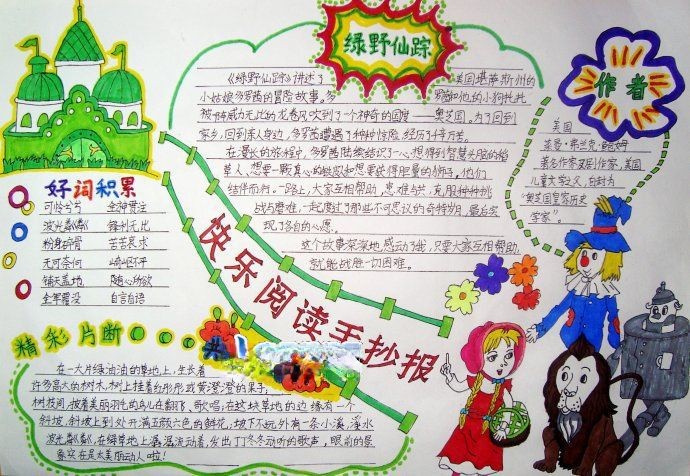 绿野仙踪
《绿野仙踪》讲述了 美国堪萨斯州的
小姑娘多罗茜的冒险故事。多 罗茜和他的小狗托托
被一阵威力无比的龙卷风吹到了一个神奇的国度——奥芝国。为了回到
家乡,回到亲人身边,多罗茜遭遇了种种惊险,经历了千辛万苦。
在漫长的旅程中,多罗茜陆续结识了一心想得到智慧头脑的稻
草人、想要一颗真心的铁皮人和想要获得胆量的狮子。他们
结伴而行。一路上,大家互相帮助,患难与共,克服种种挑
战与磨难,一起度过了那些不可思议的奇特岁月,最后实
现了各自的心愿。
这个故事深深地感动了我,只要大家互相帮助,
就能战胜一切困难。
作者
美国
莱曼·弗兰克·鲍姆
著名作家及剧作家,美国
儿童文学之父,它封为
“奥芝国皇家历史
学家”。
好词积累
可怜兮兮 全神贯注
波光粼粼 锋利无比
粉身碎骨 苦苦哀求
无可奈何 崎岖不平
铺天盖地 随心所欲
全军覆没 自言自语
快乐阅读手抄报
精彩片断
在一大片绿油油的草地上,生长着
许多高大的树木,树上挂着红彤彤或黄澄澄的果子,
树枝间,披着美丽羽毛的鸟儿在翻飞、歌唱;在这块草地的边缘有一个
斜坡,斜坡上到处开满五颜六色的鲜花,坡下不远外有一条小溪,溪水
波光粼粼,在绿草地上潺潺流动着,发出丁冬丁冬动听的歌声,眼前的景
象实在是太美丽动人啦!